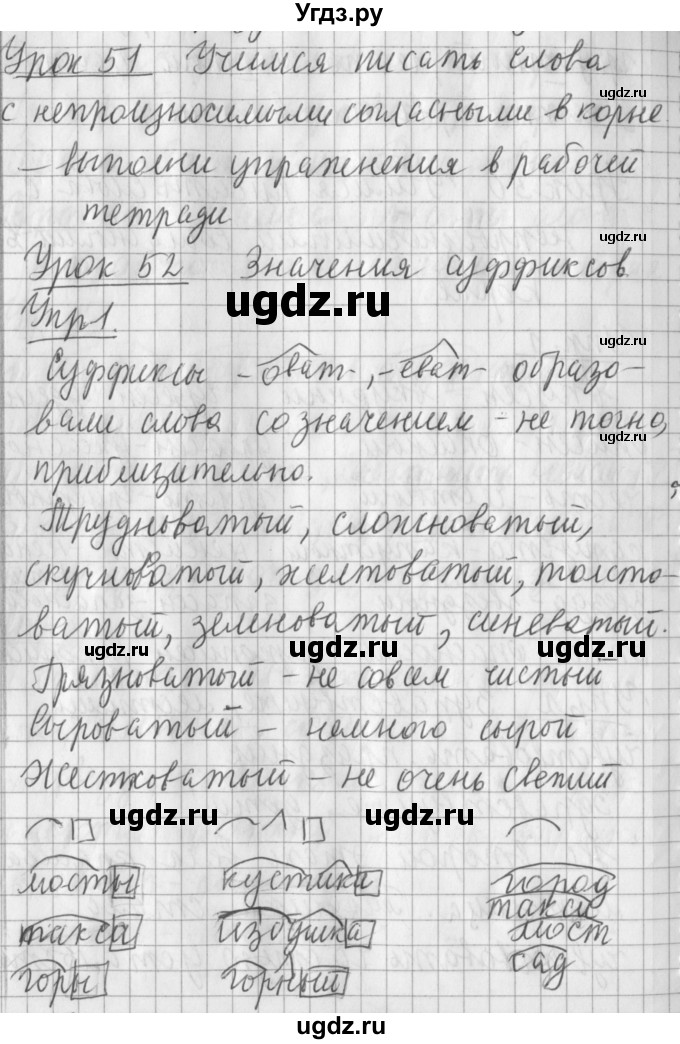 Угдз.ру
Урок 51 Учимся писать слова
ugdz.ru
с непроизносимыми согласными в корне
ugdz.ru
– выполни упражнения в рабочей
тетради
ugdz.ru
Урок 52 Значения суффиксов
ugdz.ru
Упр1.
ugdz.ru
Суффиксы -оват-, -еват- образо-
вали слова со значением - не точно,
ugdz.ru
приблизительно.
Трудноватый, сложноватый,
скучноватый, желтоватый, толсто-
ватый, зеленоватый, синеватый.
ugdz.ru ugdz.ru ugdz.ru
Грязноватый – не совсем чистый
Сыроватый – немного сырой
Жестковатый – не очень свежий
ugdz.ru ugdz.ru
мосты кустики город
такси
такса избушка мост
сад
горы горный
ugdz.ru